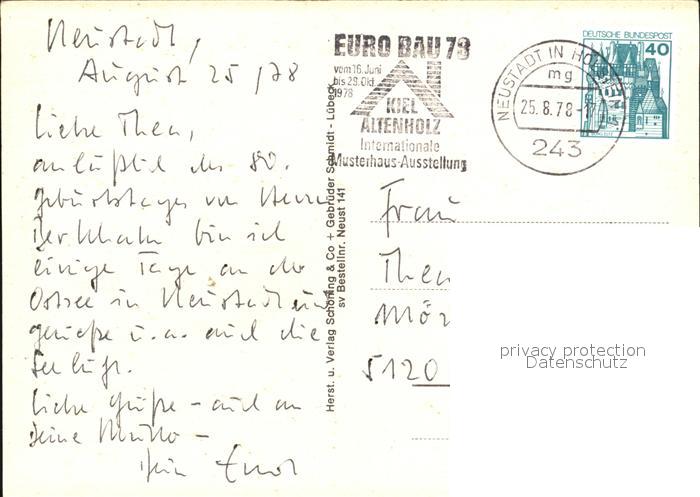 Neustadt,
August 25 /78
Liebe Thea,
anläßlich des 80.
Geburtstages von Herrn
bin ich
einige Tage an der
Ostsee in Neustadt und
genieße u.a. auch die
Seeluft.
Liebe Grüße – auch an
Deine Mutter –
Dein
Herst. u. Verlag Schöning & Co + Gebrüder Schmidt - Lübeck
sv Bestellnr. Neust 141
EURO BAU 78
vom 16. Juni
bis 29. Okt.
1978
KIEL
ALTENHOLZ
Internationale
Musterhaus-Ausstellung
NEUSTADT IN HOLSTEIN
mg
25.8.78
243
DEUTSCHE BUNDESPOST
40
Frau
Thea
Mör
5120
privacy protection
Datenschutz